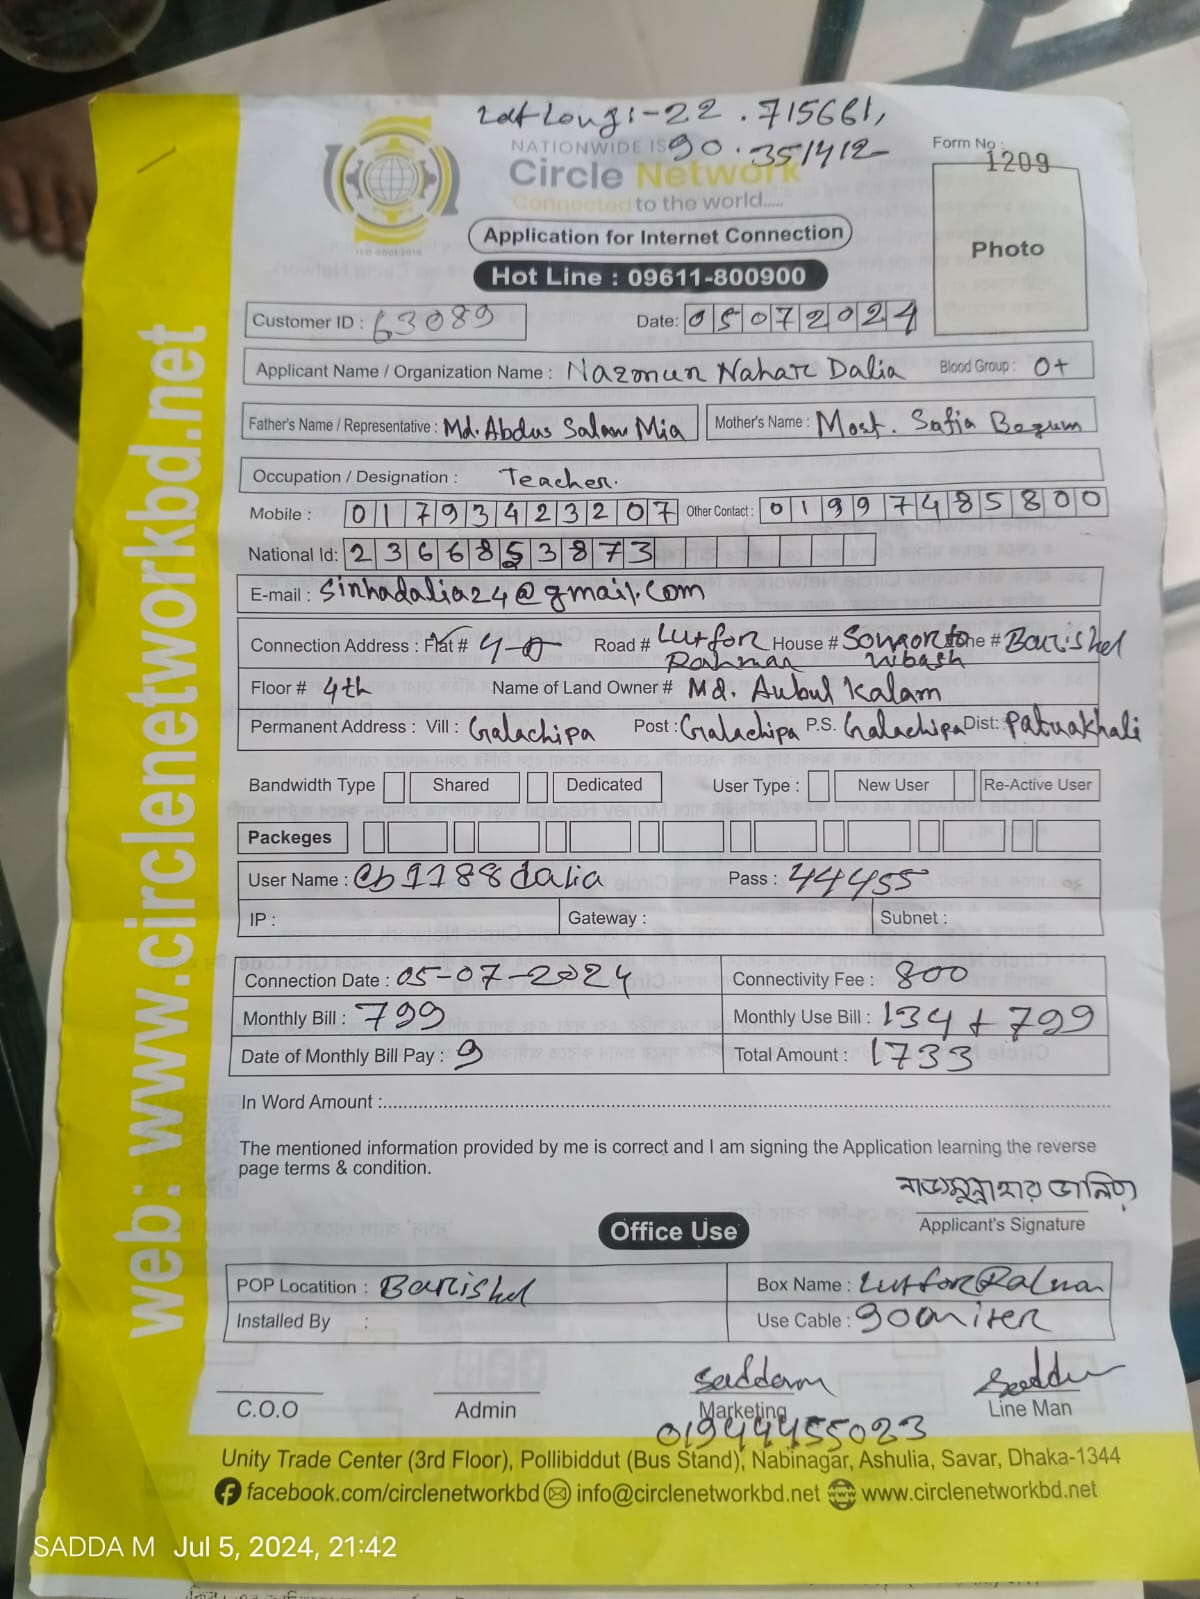 Lat Long:-22.715661,
90.351412
NATIONWIDE IS
Circle Network
Connected to the world.....
Form No :
1209
Photo
Application for Internet Connection
Hot Line : 09611-800900
Customer ID : 63089 Date: 05072024
Applicant Name / Organization Name : Nazmun Nahar Dalia Blood Group : O+
Father's Name / Representative : Md. Abdus Salam Mia Mother's Name : Most. Safia Begum
Occupation / Designation : Teacher.
Mobile : 01793423207 Other Contact : 01997485800
National Id: 2366853873
E-mail : sinhadalia24@gmail.com
Connection Address : Flat # Road # Lutfor Rahman House # Zone # Barishal
Floor # 4th Name of Land Owner # Md. Aubul Kalam
Permanent Address : Vill : Galachipa Post : Galachipa P.S. Galachipa Dist: Patuakhali
Bandwidth Type Shared Dedicated User Type : New User Re-Active User
Packeges
User Name : cb1188dalia Pass : 44455
IP : Gateway : Subnet :
Connection Date : 05-07-2024 Connectivity Fee : 800
Monthly Bill : 799 Monthly Use Bill : 134 + 799
Date of Monthly Bill Pay : 9 Total Amount : 1733
In Word Amount :
The mentioned information provided by me is correct and I am signing the Application learning the reverse
page terms & condition.
নাজমুন্নাহার ডালিয়া
Applicant's Signature
Office Use
POP Locatition : Barishal Box Name : Lutfor Rahman
Installed By : Use Cable : 90 miter
Saddam
C.O.O Admin Marketing Line Man
01944455023
Unity Trade Center (3rd Floor), Pollibiddut (Bus Stand), Nabinagar, Ashulia, Savar, Dhaka-1344
facebook.com/circlenetworkbd info@circlenetworkbd.net www.circlenetworkbd.net
web: www.circlenetworkbd.net
SADDA M Jul 5, 2024, 21:42